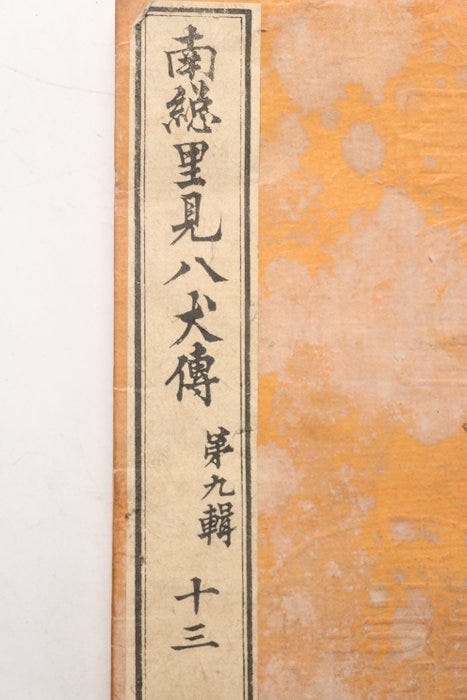 南總里見八犬傳
第九輯
十三